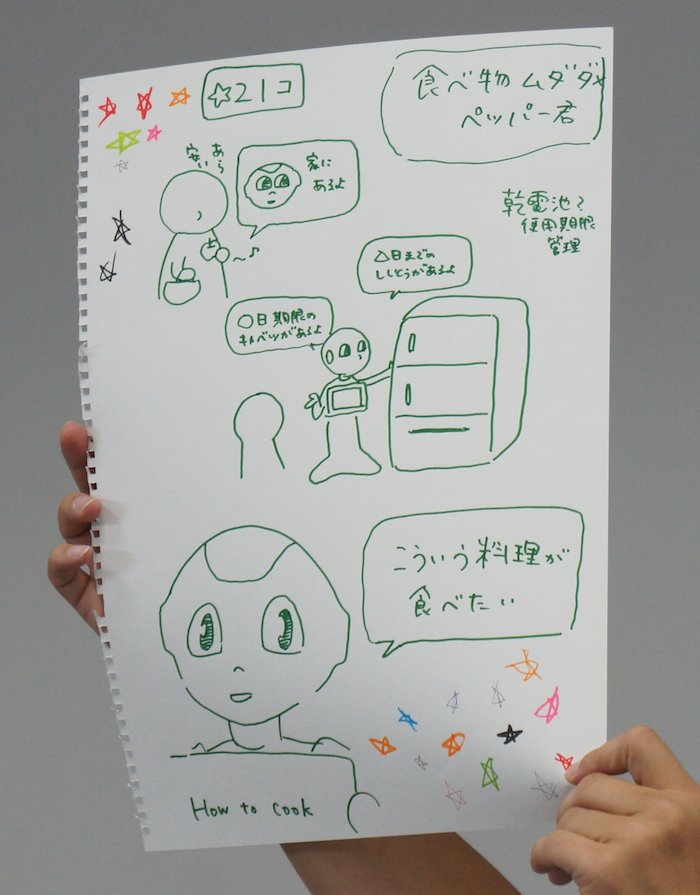 ☆21コ
食べ物ムダダメ
ペッパー君
あら
安い
家に
あるよ
乾電池?
使用期限
管理
△日までの
ししとうがあるよ
〇日期限の
キャベツがあるよ
こういう料理が
食べたい
How to cook